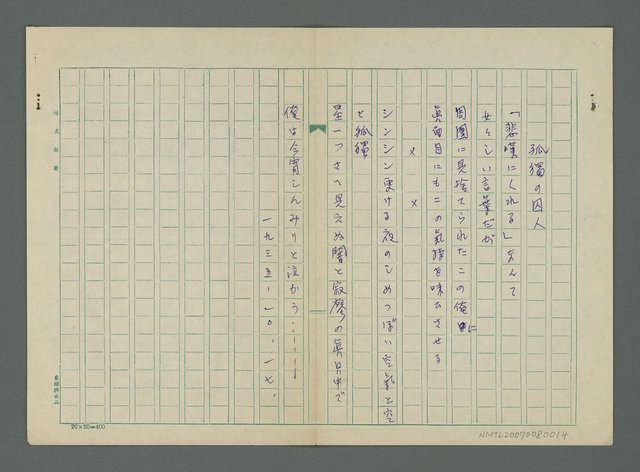 孤獨の囚人
「悲嘆にくれる」なんて
女々しい言葉だが
周圍に見捨てられたこの俺に
眞面目にもこの氣持を味ひさせる
× ×
シンシン更ける夜のしめつぽい空氣と空
と孤獨
星一つさへ見えぬ闇と寂寥の眞只中で
俺は今宵しんみりと泣かう……
一九三五・一〇・一七・
20×20=400
NMTL20070080014